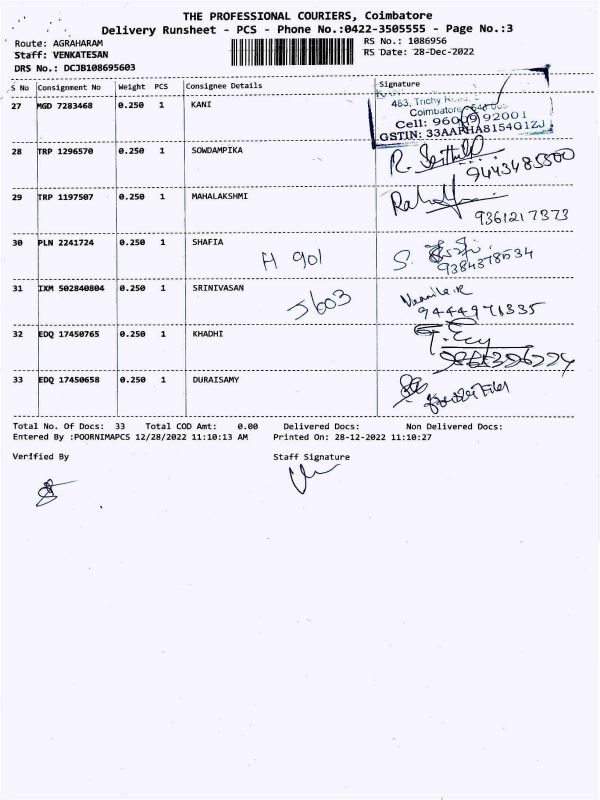 THE PROFESSIONAL COURIERS, Coimbatore
Delivery Runsheet - PCS - Phone No.:0422-3505555 - Page No.:3
Route: AGRAHARAM
RS No.: 1086956
Staff: VENKATESAN
RS Date: 28-Dec-2022
DRS No.: DCJB108695603
S No Consignment No Weight PCS Consignee Details Signature
27 MGD 7283468 0.250 1 KANI
463, Trichy
Coimbatore
Cell: 92001
GSTIN: 33AARHA8154G1ZJ
28 TRP 1296570 0.250 1 SOWDAMPIKA
9443485500
29 TRP 1197507 0.250 1 MAHALAKSHMI
9361217373
30 PLN 2241724 0.250 1 SHAFIA
H 901 S.
9384378534
31 IXM 502840804 0.250 1 SRINIVASAN
J603
9444971335
32 EDQ 17450765 0.250 1 KHADHI
33 EDQ 17450658 0.250 1 DURAISAMY
Total No. Of Docs: 33 Total COD Amt: 0.00 Delivered Docs: Non Delivered Docs:
Entered By :POORNIMAPCS 12/28/2022 11:10:13 AM Printed On: 28-12-2022 11:10:27
Verified By Staff Signature